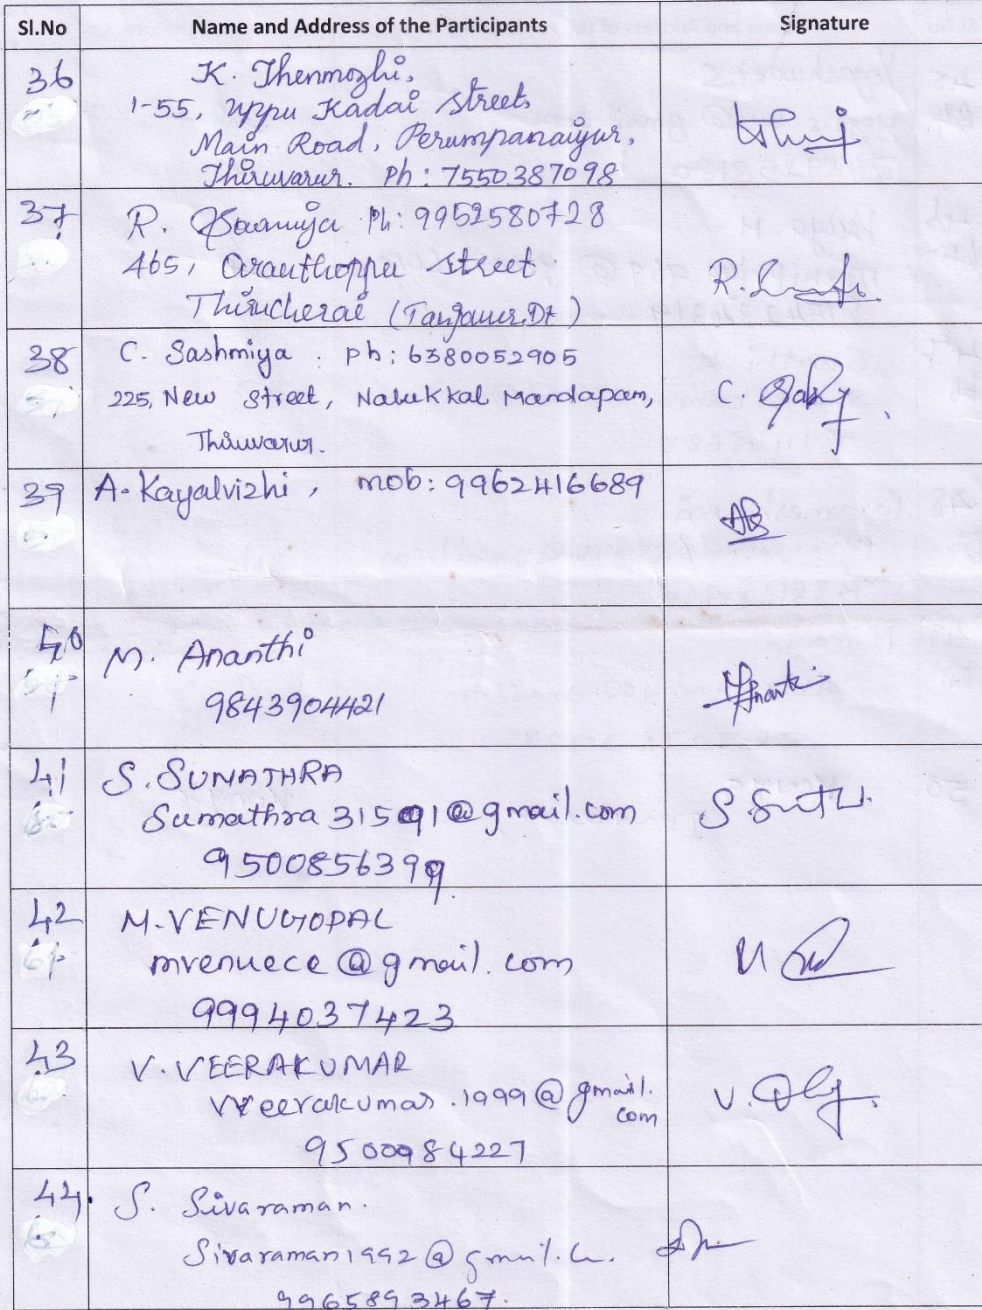 Sl.No Name and Address of the Participants Signature
36 K. Thenmozhi,
1-55, uppu Kadai street,
Main Road, Perumpanaiyur,
Thiruvarur. Ph: 7550387098
37 R. Sowmiya Ph: 9952580728
465, Oranthoppu street
Thirucherai (Tanjauur.Dt)
R.
38 C. Sashmiya. Ph: 6380052905
225, New street, Nalukkal Mandapam,
Thiruvarur.
C.
39 A. Kayalvizhi, mob: 9962416689
40 M. Ananthi
9843904421
41 S. SUNATHRA
Sumathra31591@gmail.com
9500856399
S.
42 M. VENUGOPAL
mvenuece@gmail.com
9994037423
43 V. VEERAKUMAR
vveerakumar.1999@gmail.
com
9500984227
V.
44. S. Sivaraman.
Sivaraman1992@gmail.
9965893467.